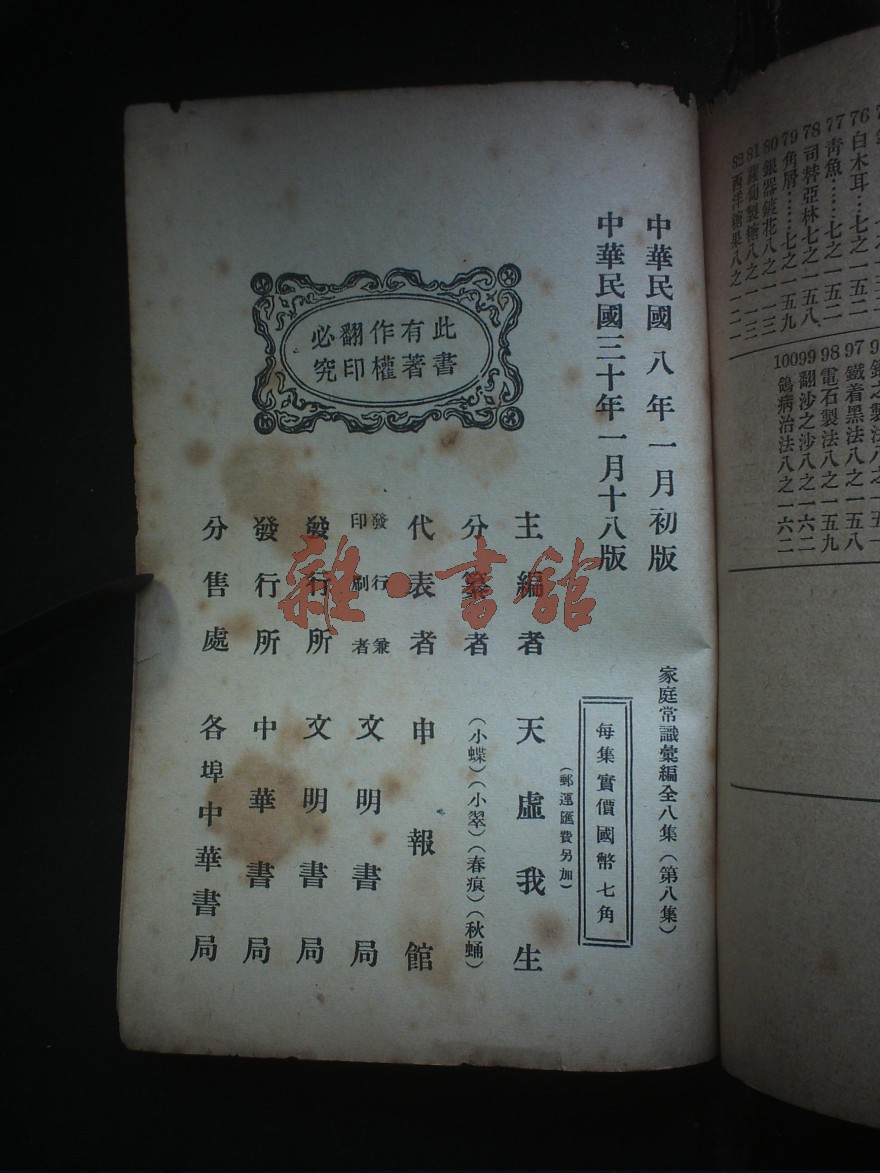 中華民國八年一月初版
中華民國三十年一月十八版
家庭常識彙編全八集(第八集)
每集實價國幣七角
(郵運匯費另加)
主編者 天虛我生
分纂者 (小蝶)(小翠)(春痕)(秋蛹)
代表者 申報館
發行兼印刷者 文明書局
發行所 文明書局
發行所 中華書局
分售處 各埠中華書局
此書
有著
作權
翻印
必究
雜·書館
76白木耳…七之一五二
77青魚……七之一五二
78司替亞林七之一五八
79角屑……七之一五九
80銀器鍍花八之一三
81蘿蔔製糖八之一三
82西洋糖果八之一二一
97鐵着黑法八之一五八
98電石製法八之一五九
99翻沙之沙八之一六二
100鴿病治法八之一六二